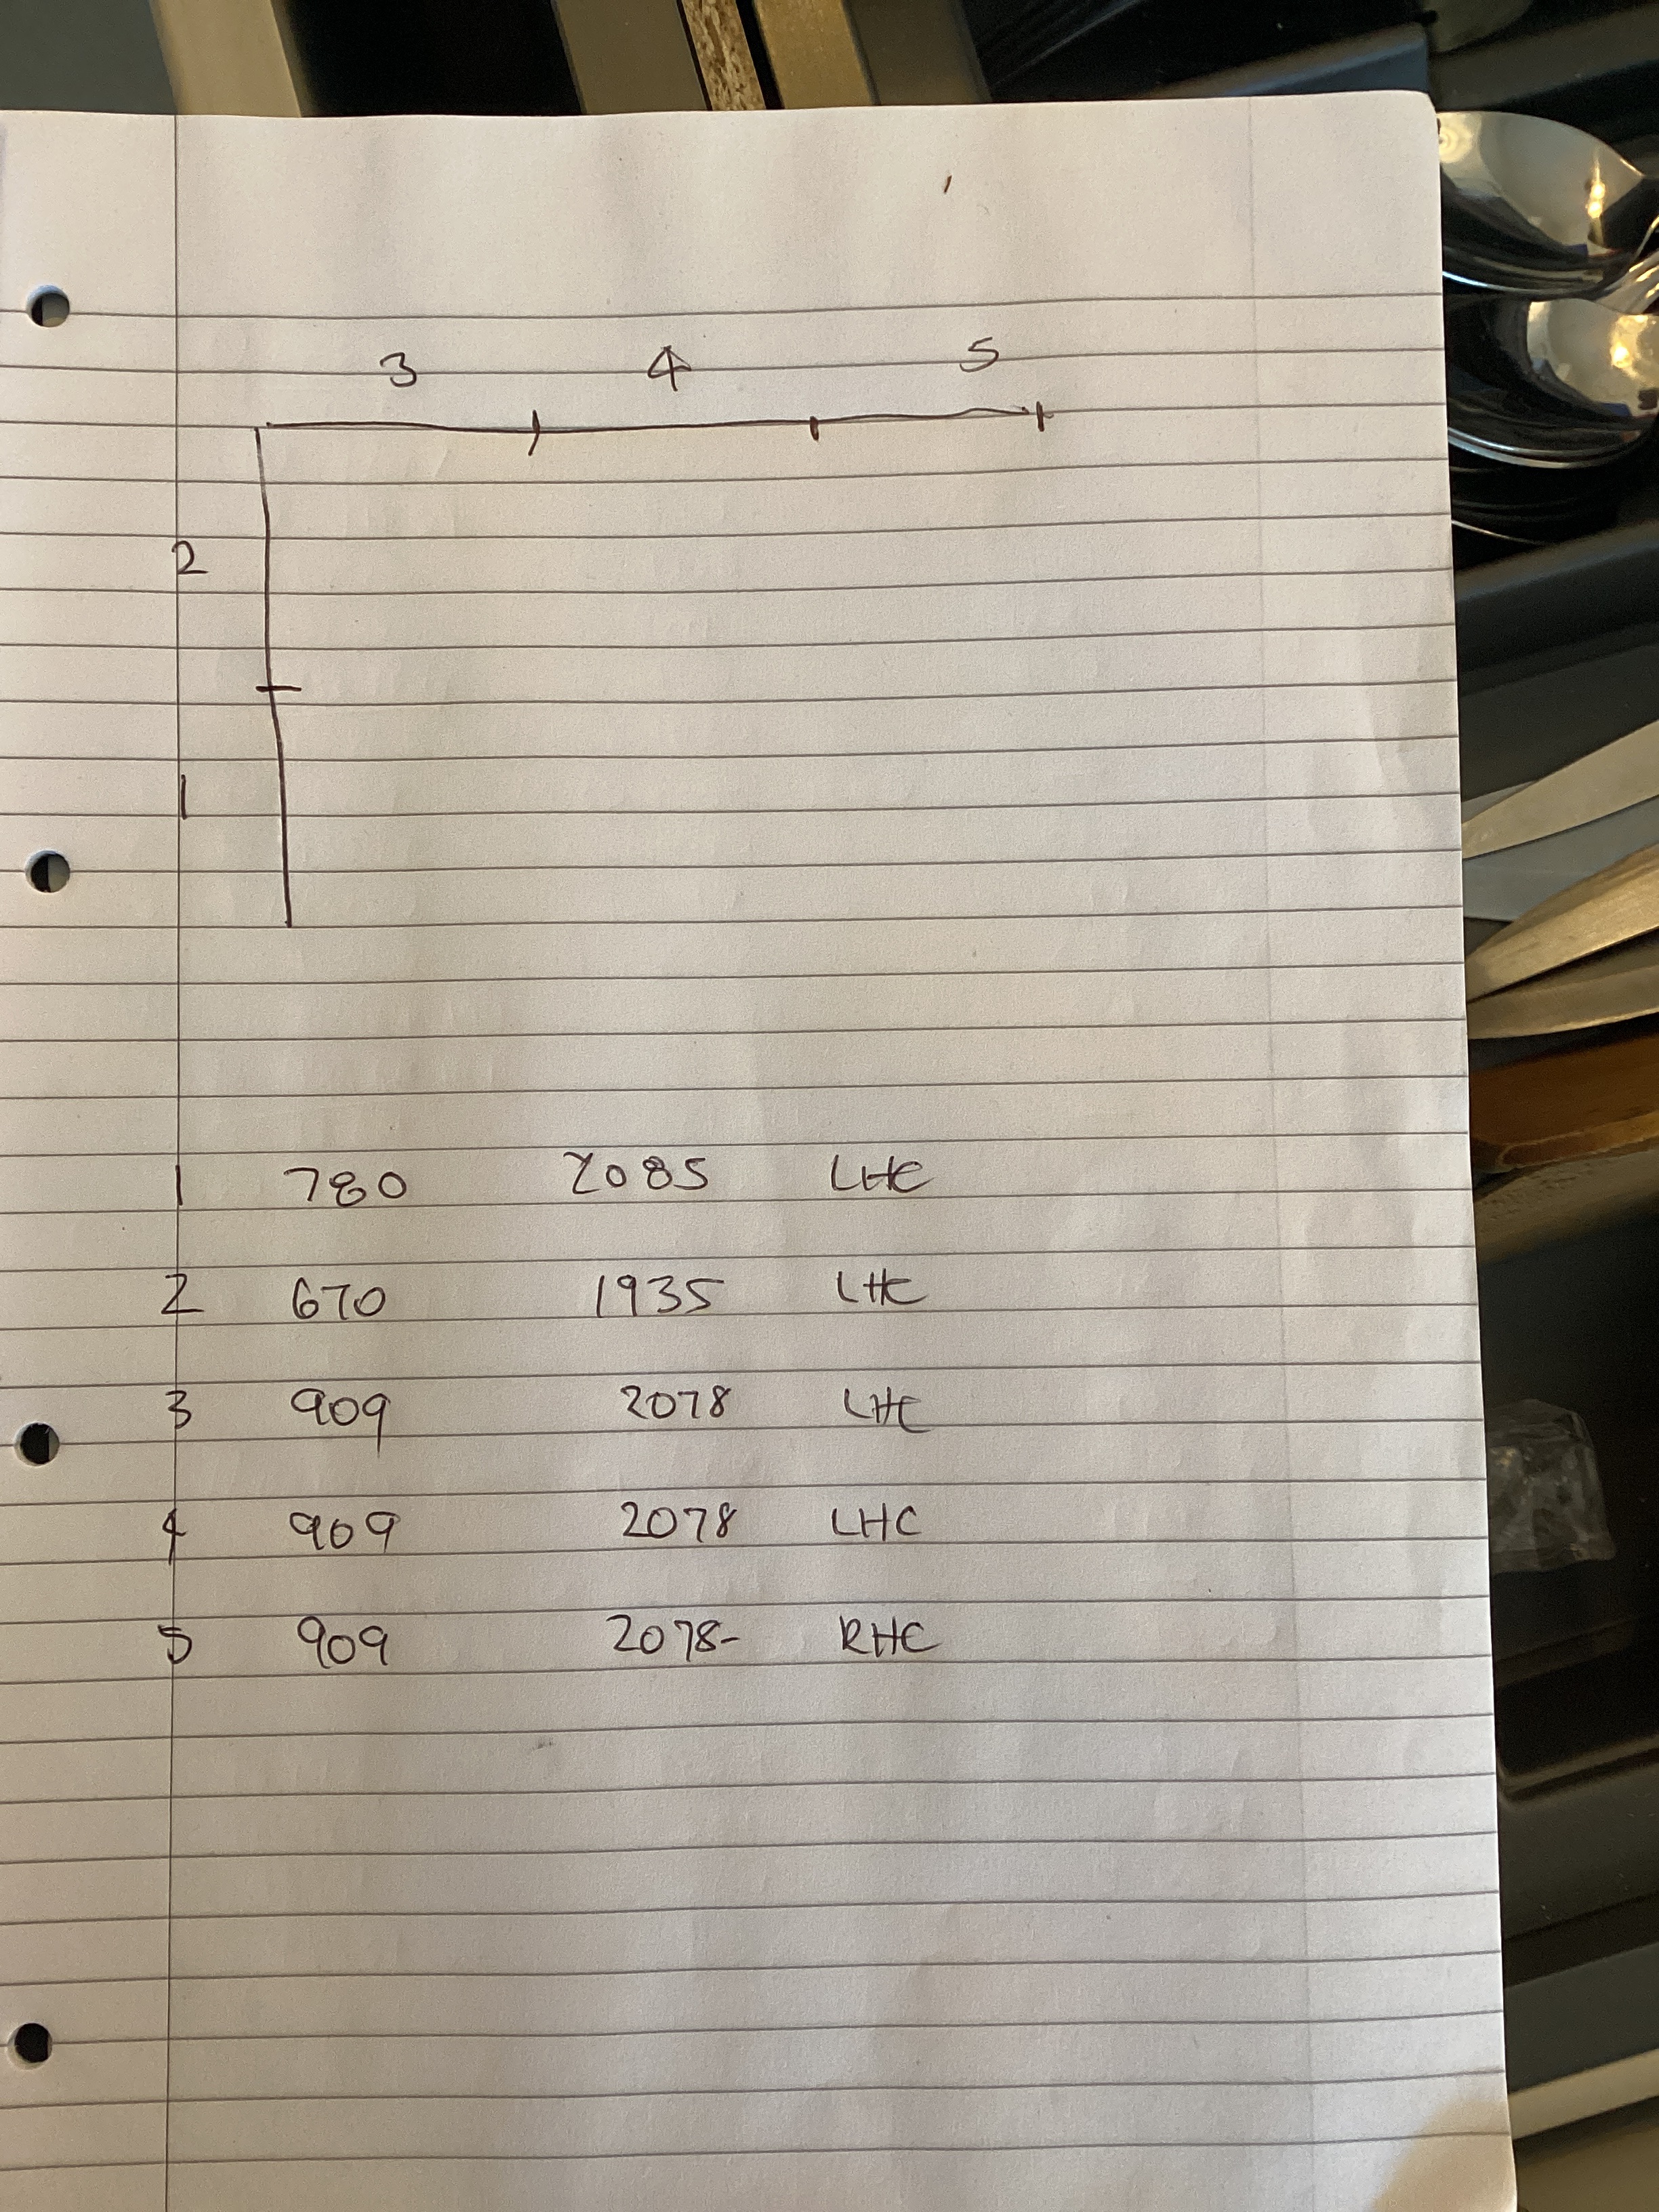 3 4 5
2
1
1 780 2085 LHC
2 670 1935 LHC
3 909 2078 LHC
4 909 2078 LHC
5 909 2078- RHC